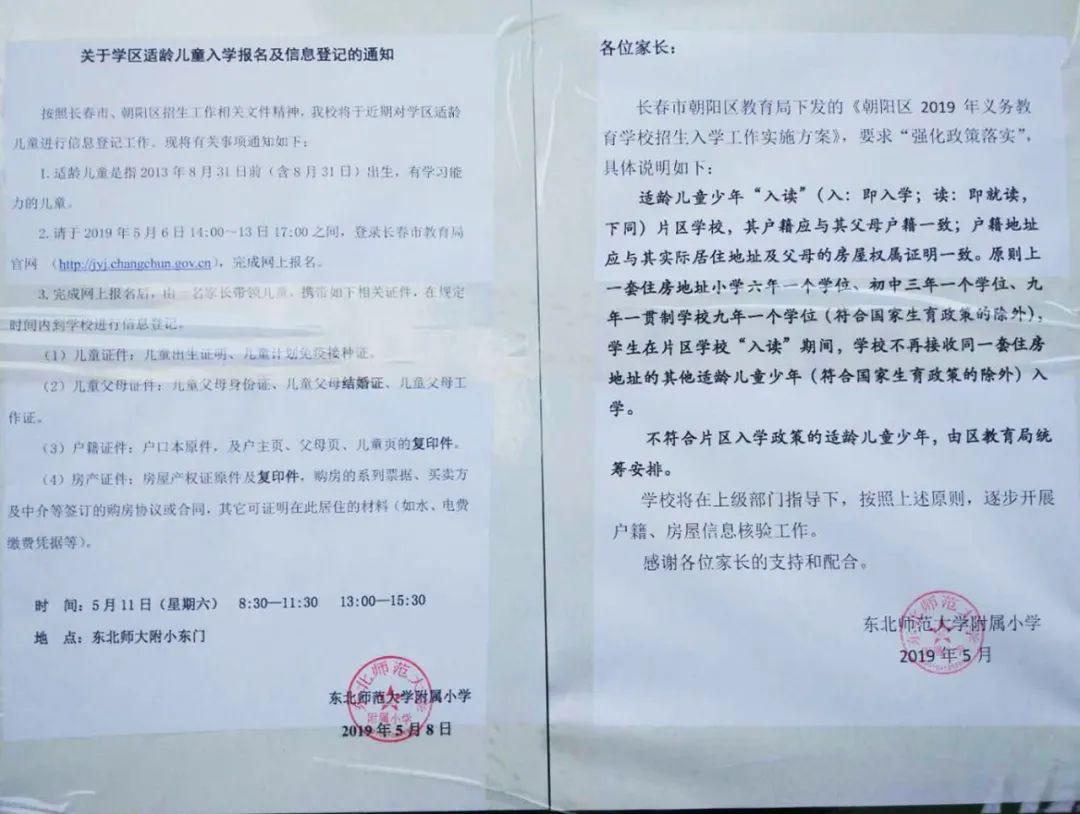 关于学区适龄儿童入学报名及信息登记的通知
按照长春市、朝阳区招生工作相关文件精神，我校将于近期对学区适龄
儿童进行信息登记工作。现将有关事项通知如下：
1.适龄儿童是指2013年8月31日前（含8月31日）出生，有学习能
力的儿童。
2.请于2019年5月6日14:00~13日17:00之间，登录长春市教育局
官网 （http://jyj.changchun.gov.cn），完成网上报名。
3.完成网上报名后，由一名家长带领儿童，携带如下相关证件，在规定
时间内到学校进行信息登记。
（1）儿童证件：儿童出生证明、儿童计划免疫接种证。
（2）儿童父母证件：儿童父母身份证、儿童父母结婚证、儿童父母工
作证。
（3）户籍证件：户口本原件，及户主页、父母页、儿童页的复印件。
（4）房产证件：房屋产权证原件及复印件，购房的系列票据、买卖方
及中介等签订的购房协议或合同，其它可证明在此居住的材料（如水、电费
缴费凭据等）。
时 间：5月11日（星期六） 8:30—11:30 13:00—15:30
地 点：东北师大附小东门
东北师范大学附属小学
2019年5月8日
东北师范大学
附属小学
各位家长：
长春市朝阳区教育局下发的《朝阳区2019 年义务教
育学校招生入学工作实施方案》，要求“强化政策落实”，
具体说明如下：
适龄儿童少年“入读”（入：即入学；读：即就读，
下同）片区学校，其户籍应与其父母户籍一致；户籍地址
应与其实际居住地址及父母的房屋权属证明一致。原则上
一套住房地址小学六年一个学位、初中三年一个学位、九
年一贯制学校九年一个学位（符合国家生育政策的除外），
学生在片区学校“入读”期间，学校不再接收同一套住房
地址的其他适龄儿童少年（符合国家生育政策的除外）入
学。
不符合片区入学政策的适龄儿童少年，由区教育局统
筹安排。
学校将在上级部门指导下，按照上述原则，逐步开展
户籍、房屋信息核验工作。
感谢各位家长的支持和配合。
东北师范大学附属小学
2019年5月
东北师范大学